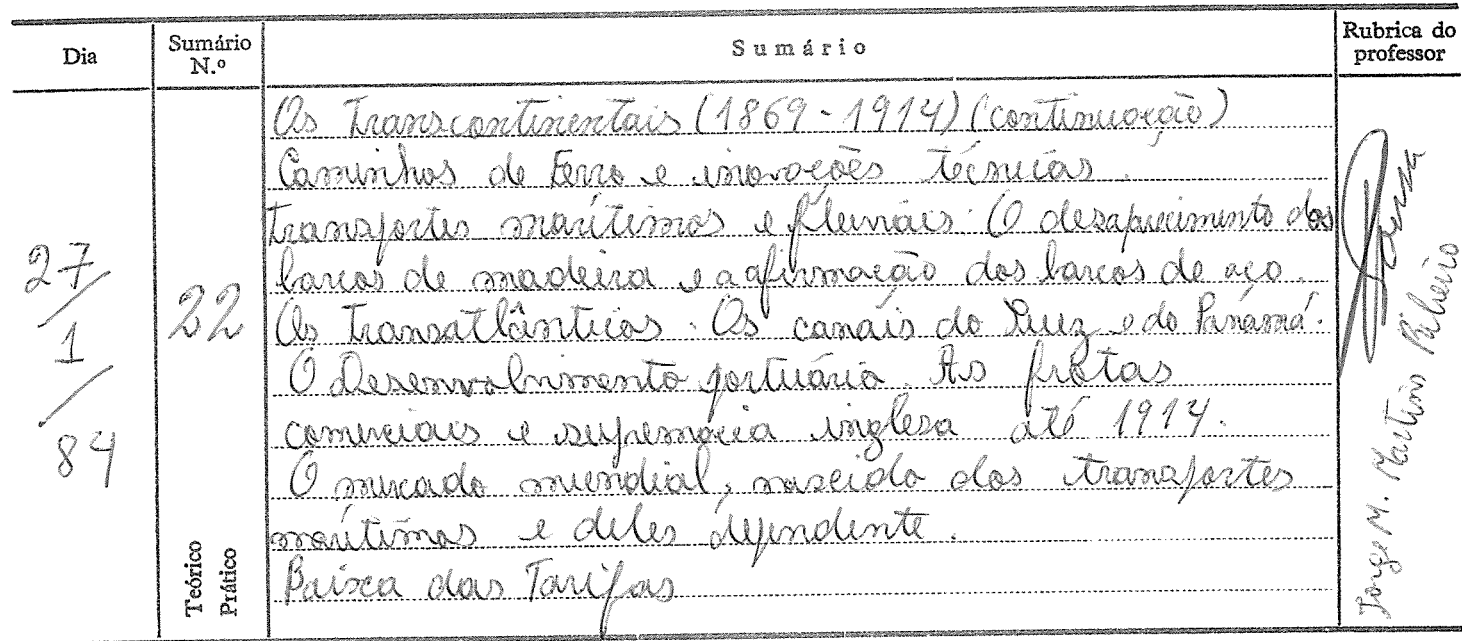 Dia
Sumário N.º
Sumário
Rubrica do professor
27/1/84
22
Teórico
Prático
Os Transcontinentais (1869-1914) (continuação)
Caminhos de Ferro e inovações técnicas.
Transportes marítimos e fluviais. O desaparecimento dos
barcos de madeira e a afirmação dos barcos de aço.
Os Transatlânticos. Os canais do Suez e do Panamá.
O Desenvolvimento portuário. As frotas
comerciais e supremacia inglesa até 1914.
O mercado mundial, nascido dos transportes
marítimos e deles dependente.
Baixa das Tarifas
Jorge M. Martins Ribeiro